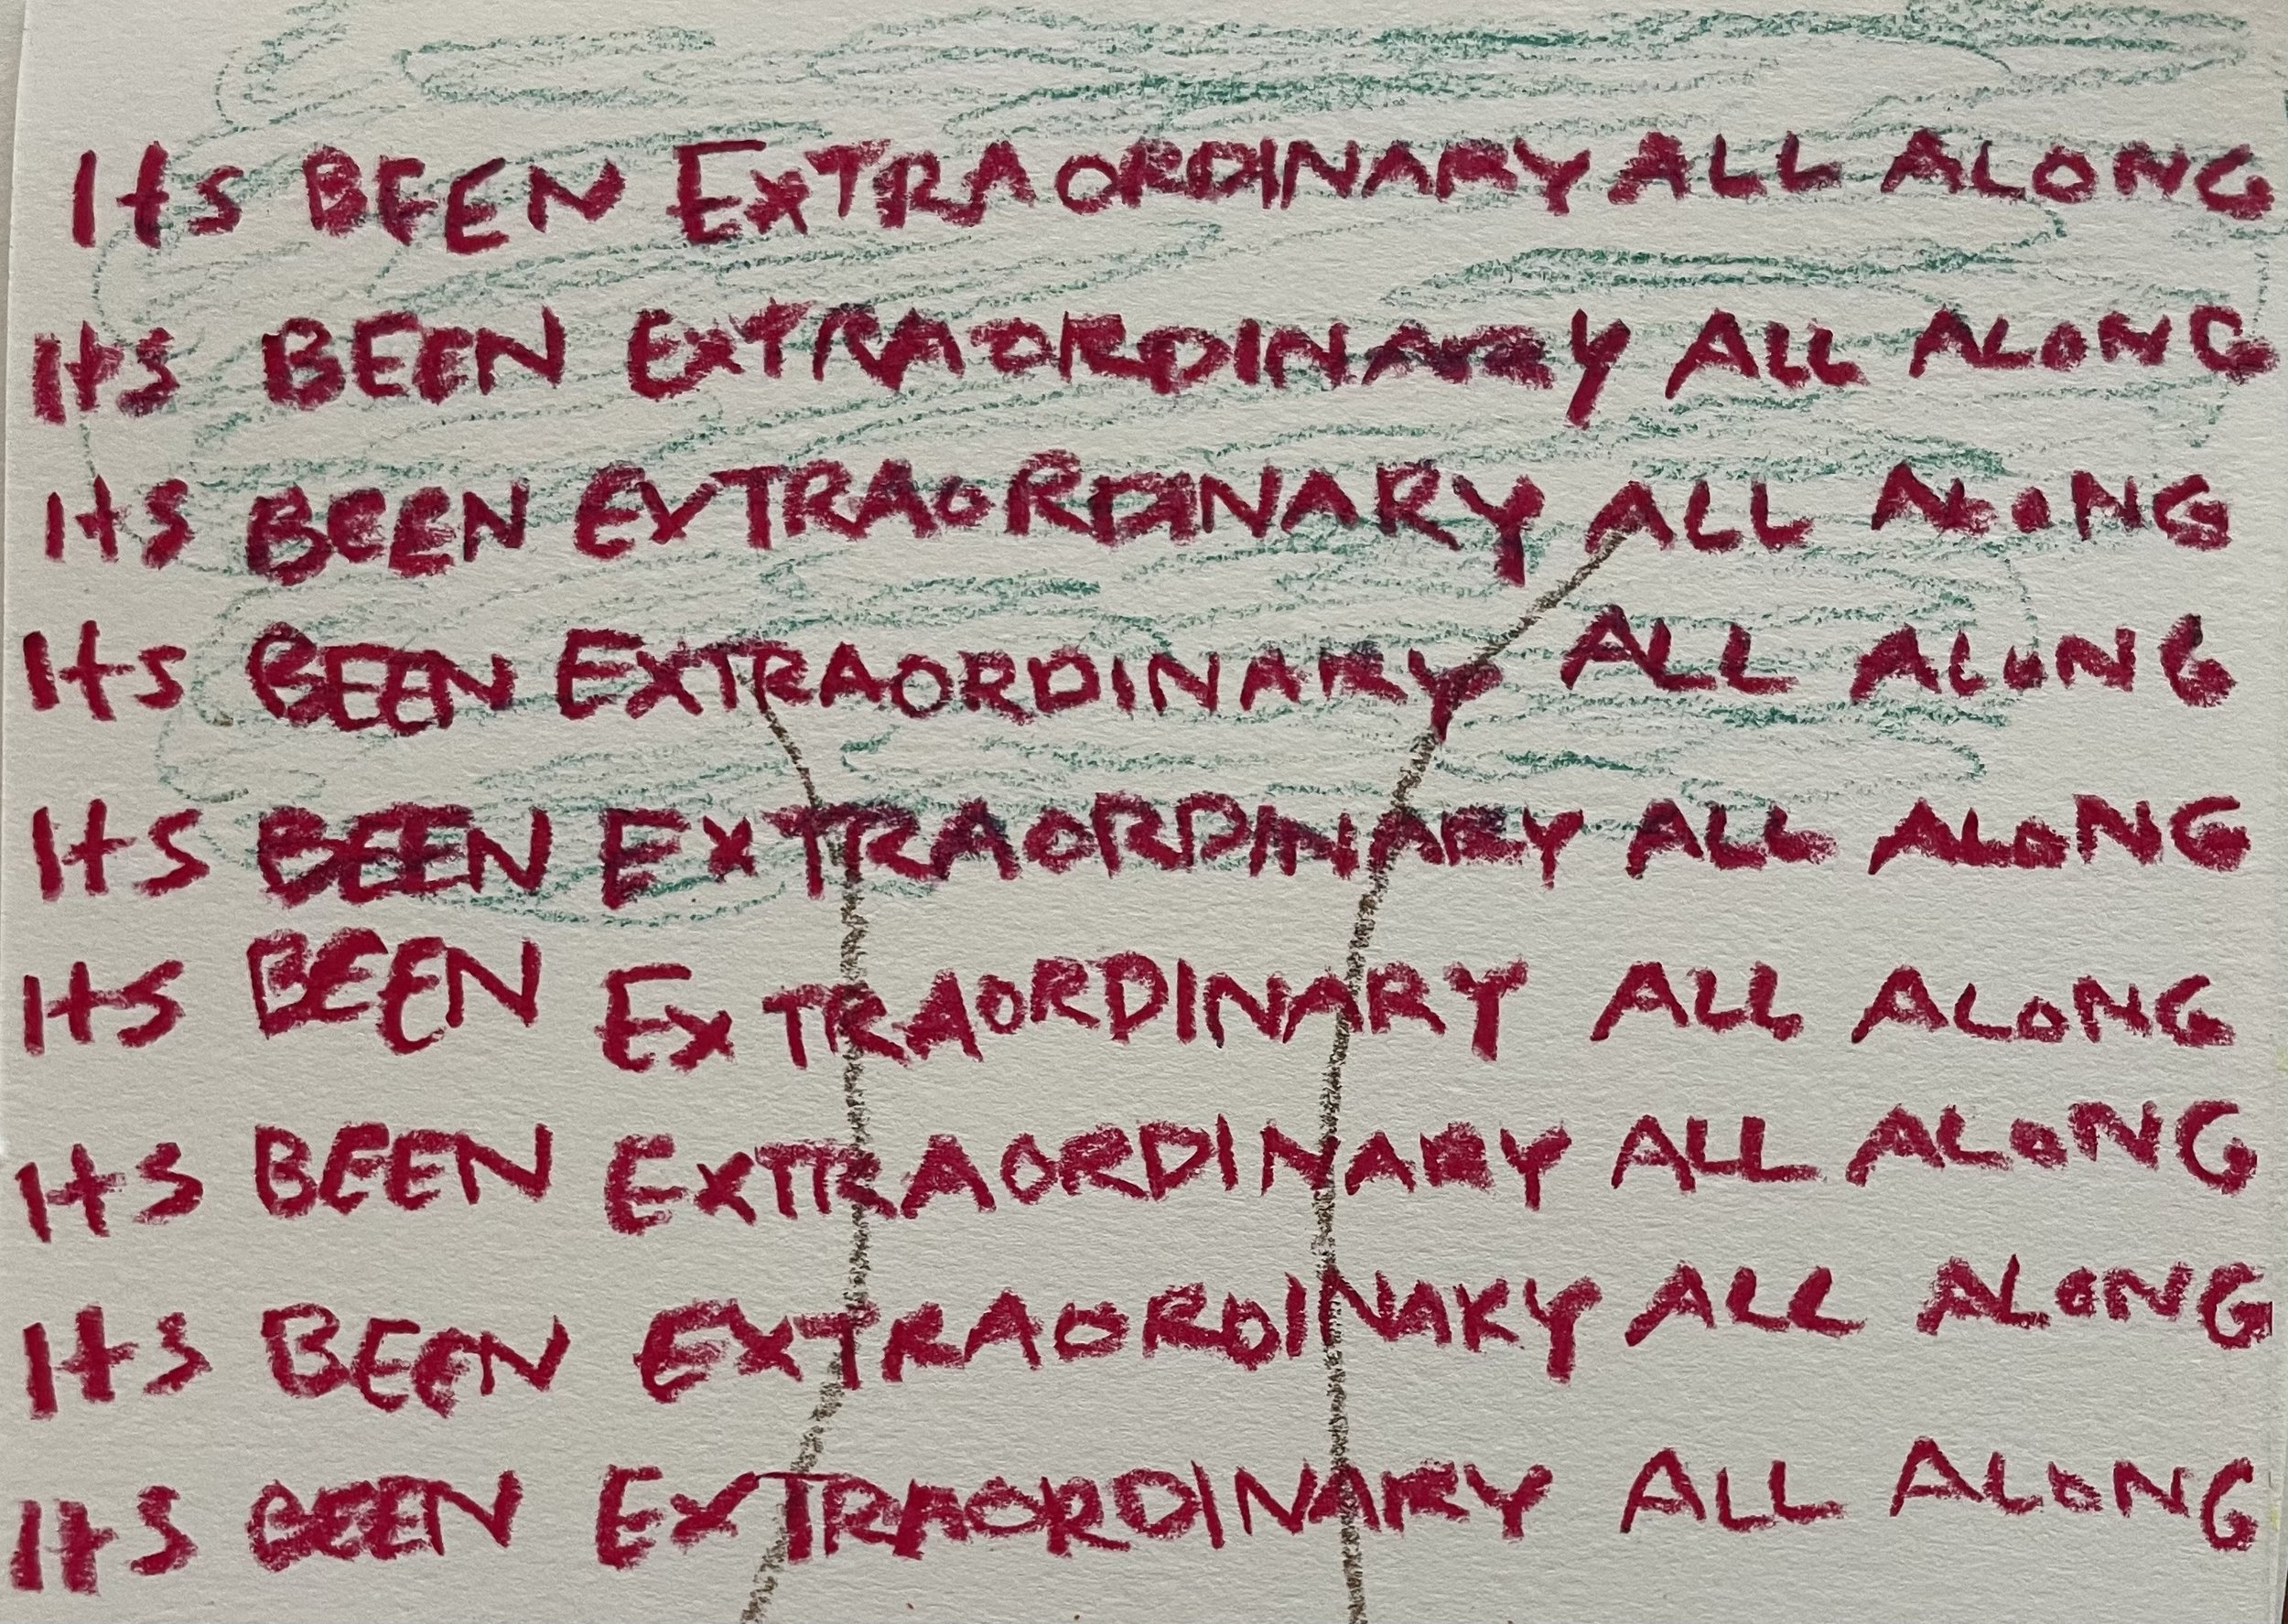 Its BEEN ExTRAORDINARY ALL ALONG
Its BEEN ExTRAORDINARY ALL ALONG
Its BEEN EXTRAORDINARY ALL ALONG
Its BEEN EXTRAORDINARY ALL ALONG
Its BEEN ExTRAORDINARY ALL ALONG
Its BEEN Ex TRAORDINARY ALL ALONG
Its BEEN ExTRAORDINARY ALL ALONG
Its BEEN EXTRAORDINARY ALL ALONG
Its BEEN ExTRAORDINARY ALL ALONG